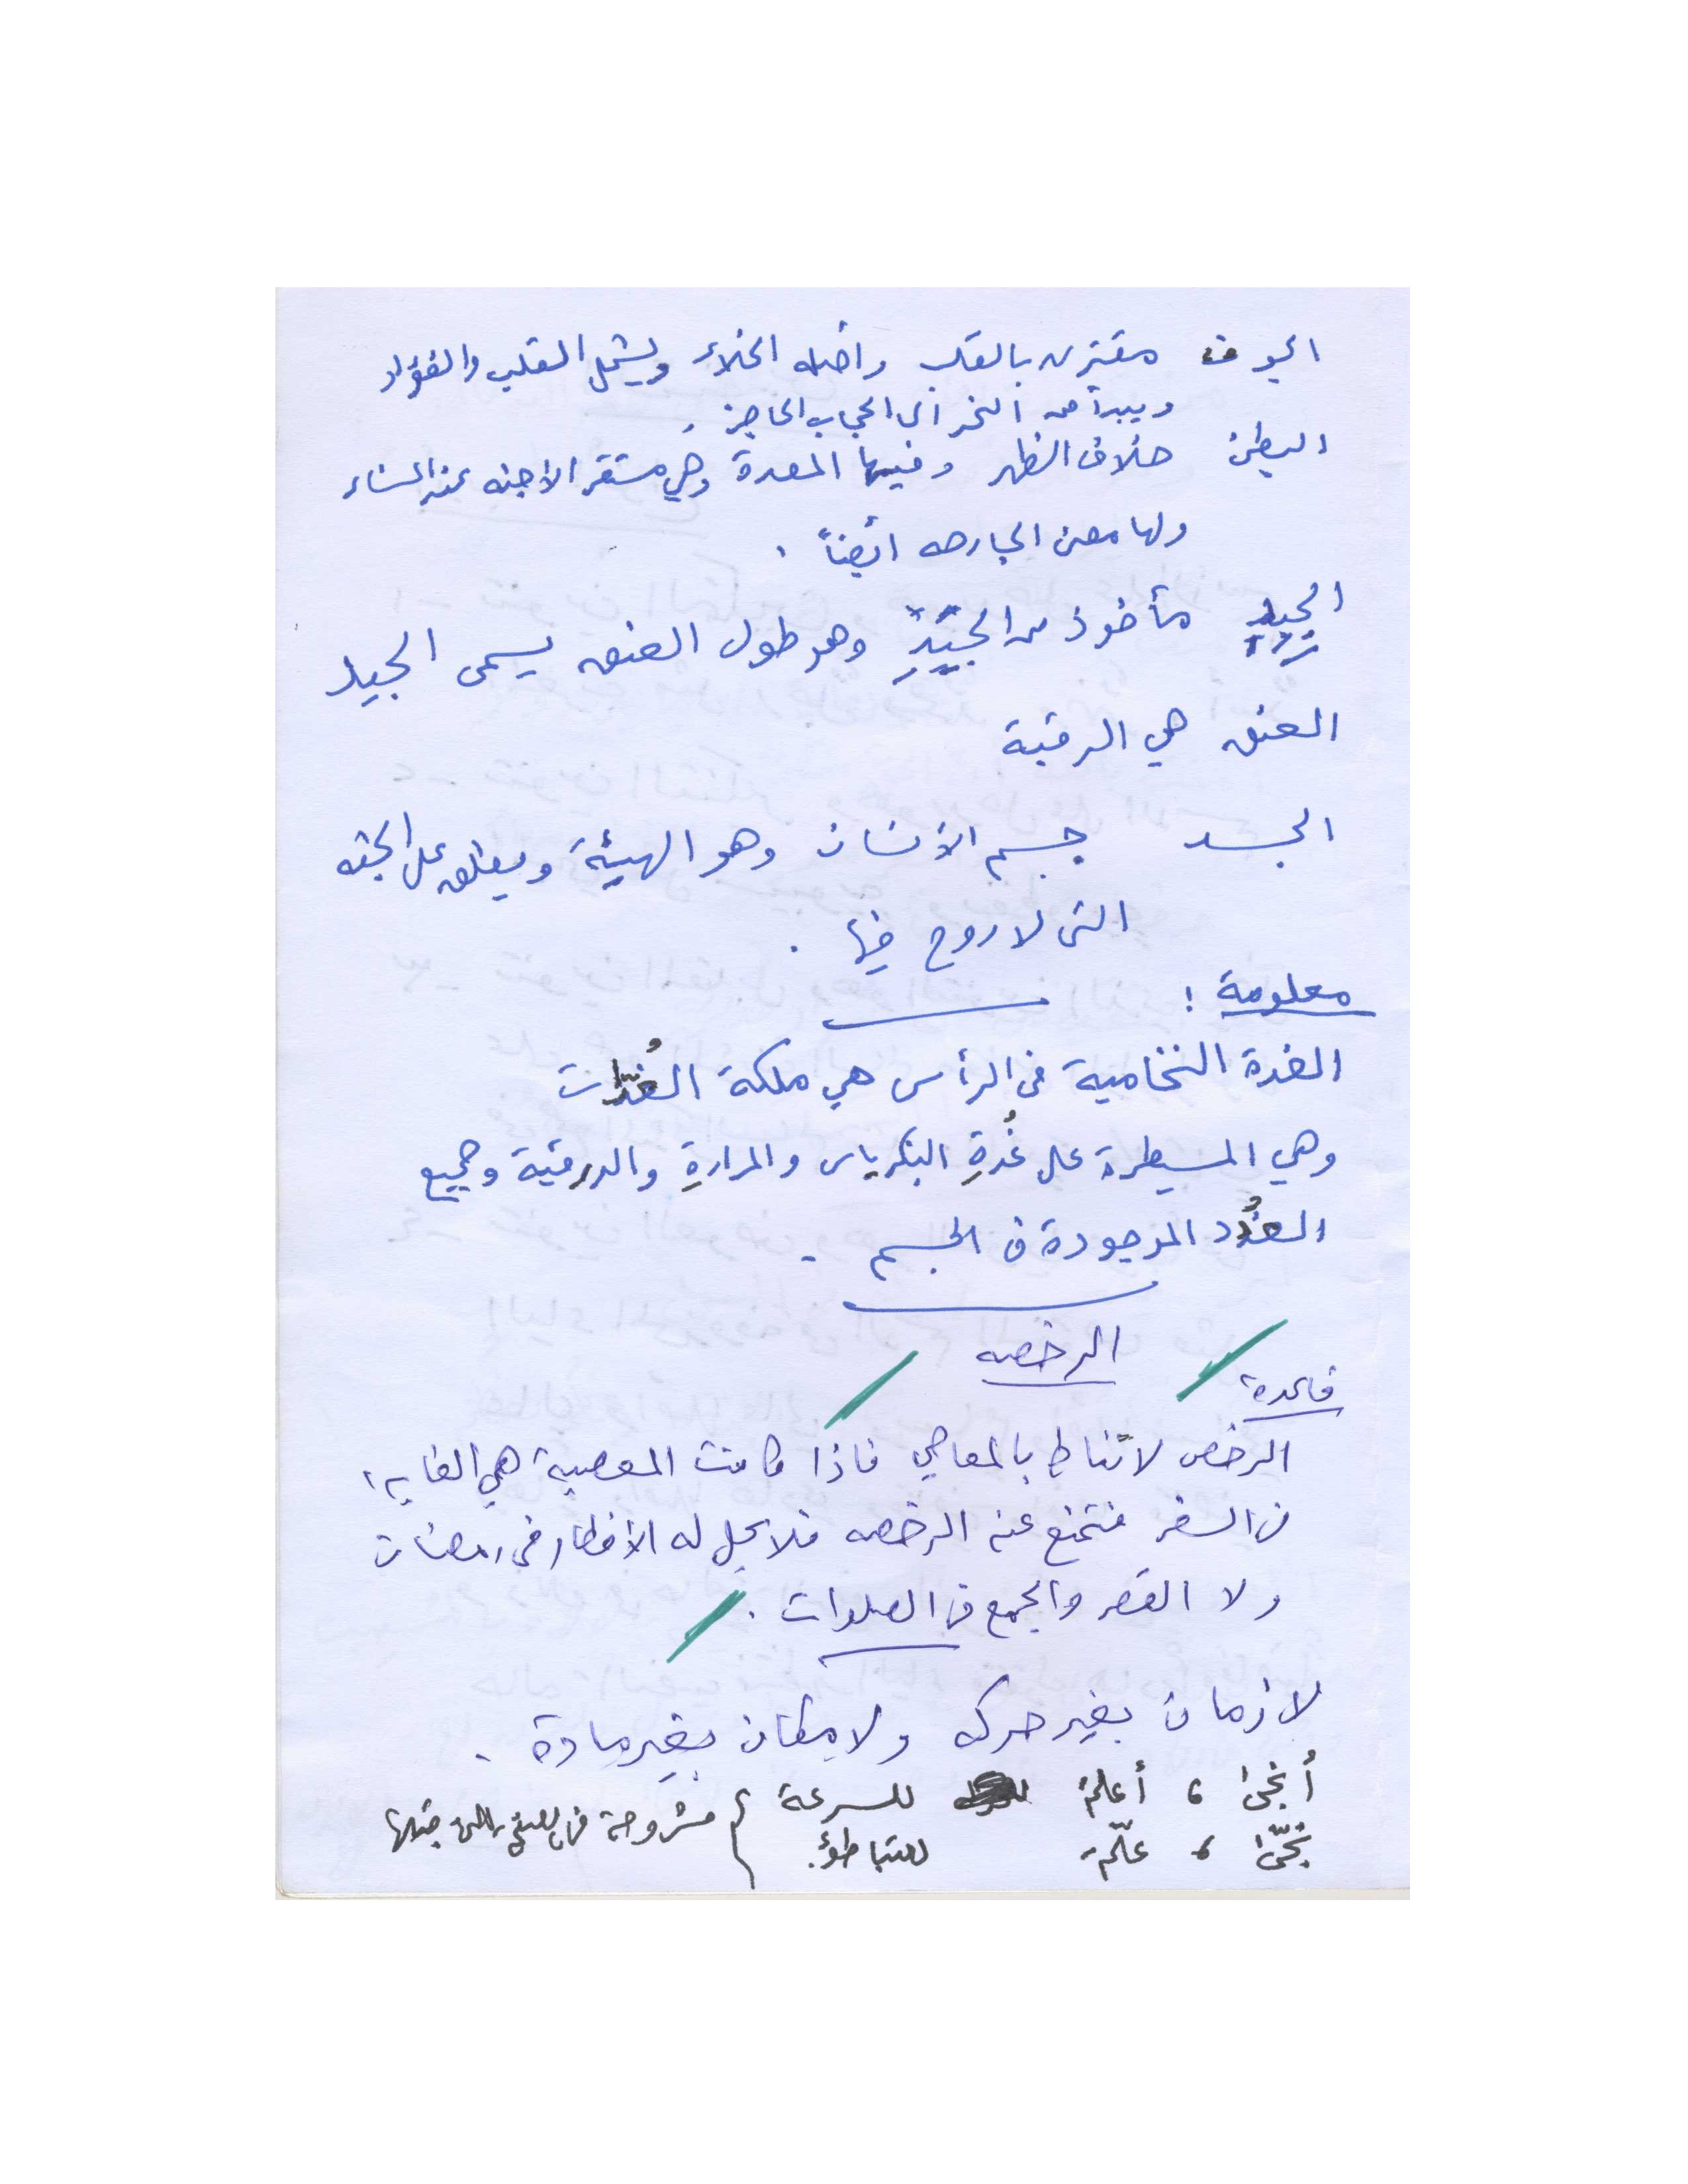 الجوف مقترن بالقلب وأصله الخلاء ويشمل القلب والفؤاد
ويبدأ من النحر الى الحجاب الحاجز .
البطن خلاف الظهر وفيها المعدة وهي مستقر الاجنه عند النساء
ولها معنى الجارحه أيضاً .
الجيد مأخوذ من الجَيَدِ وهو طول العنق يسمى الجيد
العنق هي الرقبة
الجسد جسم الانسان وهو الهيئة ويطلق على الجثه
التى لا روح فيها .
معلومة :
الغدة النخامية في الرأس هي ملكة الغُدّات
وهي المسيطرة على غُدةِ البنكرياس والمرارةِ والدرقية وجميع
الغُدد الموجودة في الجسم .
الرخصه
قاعدة:
الرخص لا تناط بالمعاصي فاذا كانت المعصية هي الغاية
في السفر فتمنع عنه الرخصه فلا يحل له الافطار في رمضان
ولا القصر والجمع في الصلوات .
لا زمان بغير حركه ولا مكان بغير مادة .
أنجى ، أعلم للسرعة
نجّى ، علّم للتباطؤ. } مشروحة في الصفحة التي قبلها